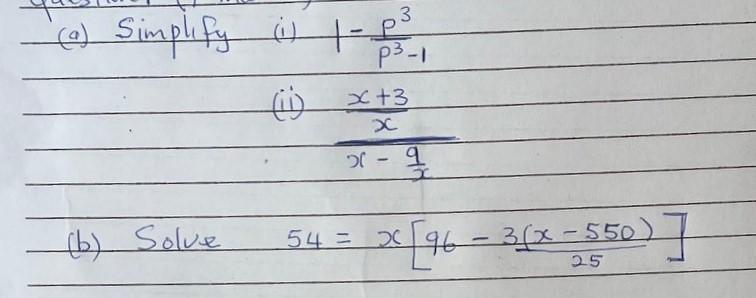 (a) Simplify (i) 1 - p³/(p³-1)
(ii) ((x+3)/x)/(x - 9/x)
(b) Solve 54 = x[96 - 3(x-550)/25]